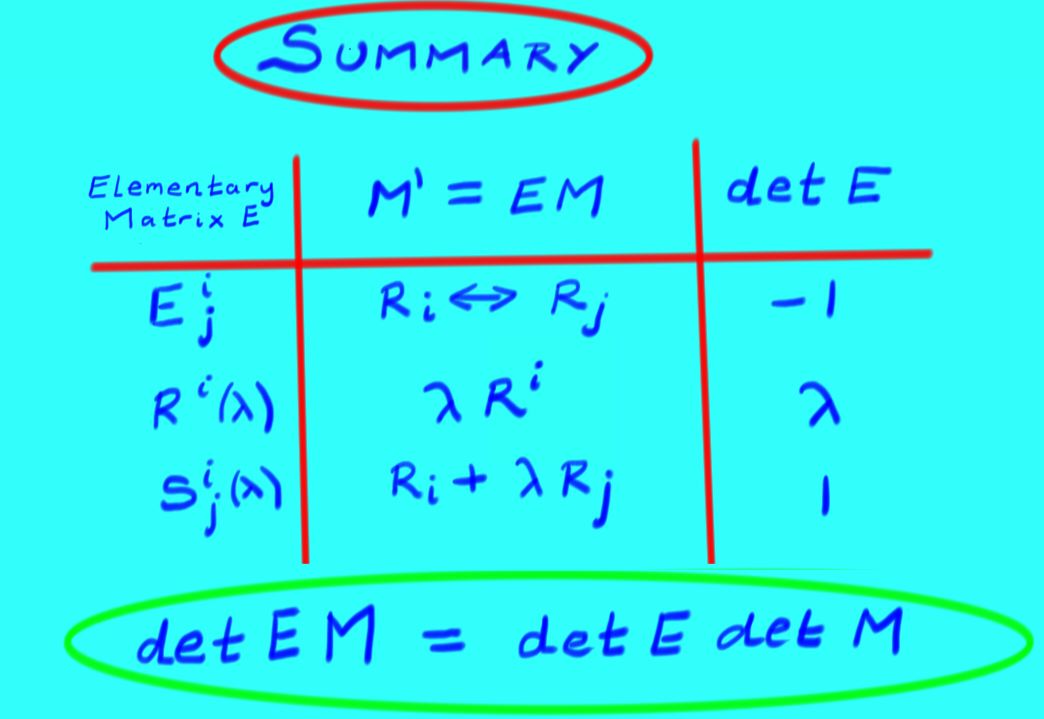 SUMMARY
Elementary Matrix E | M' = EM | det E
E^i_j | R_i ↔ R_j | -1
R^i(λ) | λ R^i | λ
S^i_j(λ) | R_i + λ R_j | 1
det E M = det E det M